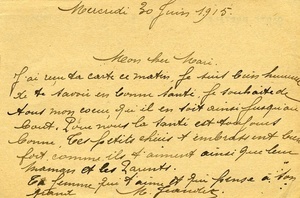 Mercredi 30 Juin 1915.
Mon cher Mari.
J'ai reçu ta carte ce matin. Je suis bien heureuse
de te savoir en bonne santé, je souhaite de
tous mon coeur, qu'il en soit ainsi jusqu'au
bout. Pour nous la santé est toujours
bonne. Tes petits chéris t'embrassent bien
fort, comme ils t'aiment ainsi que leur
maman et les parents.
Ta femme qui t'aime et qui pense à ton
M.